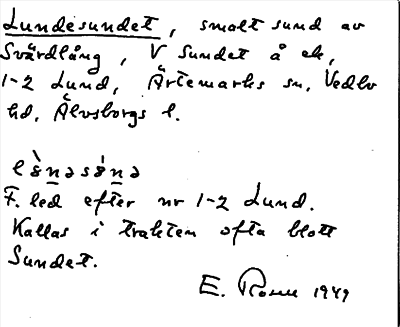 Lundesundet, smalt sund av
Svärdlång, V Sundet å ek,
1-2 Lund, Ärtemarks sn, Vedbo
hd, Älvsborgs l.
F. led efter nr 1-2 Lund.
Kallas i trakten ofta blott
Sundet.
E. 1949